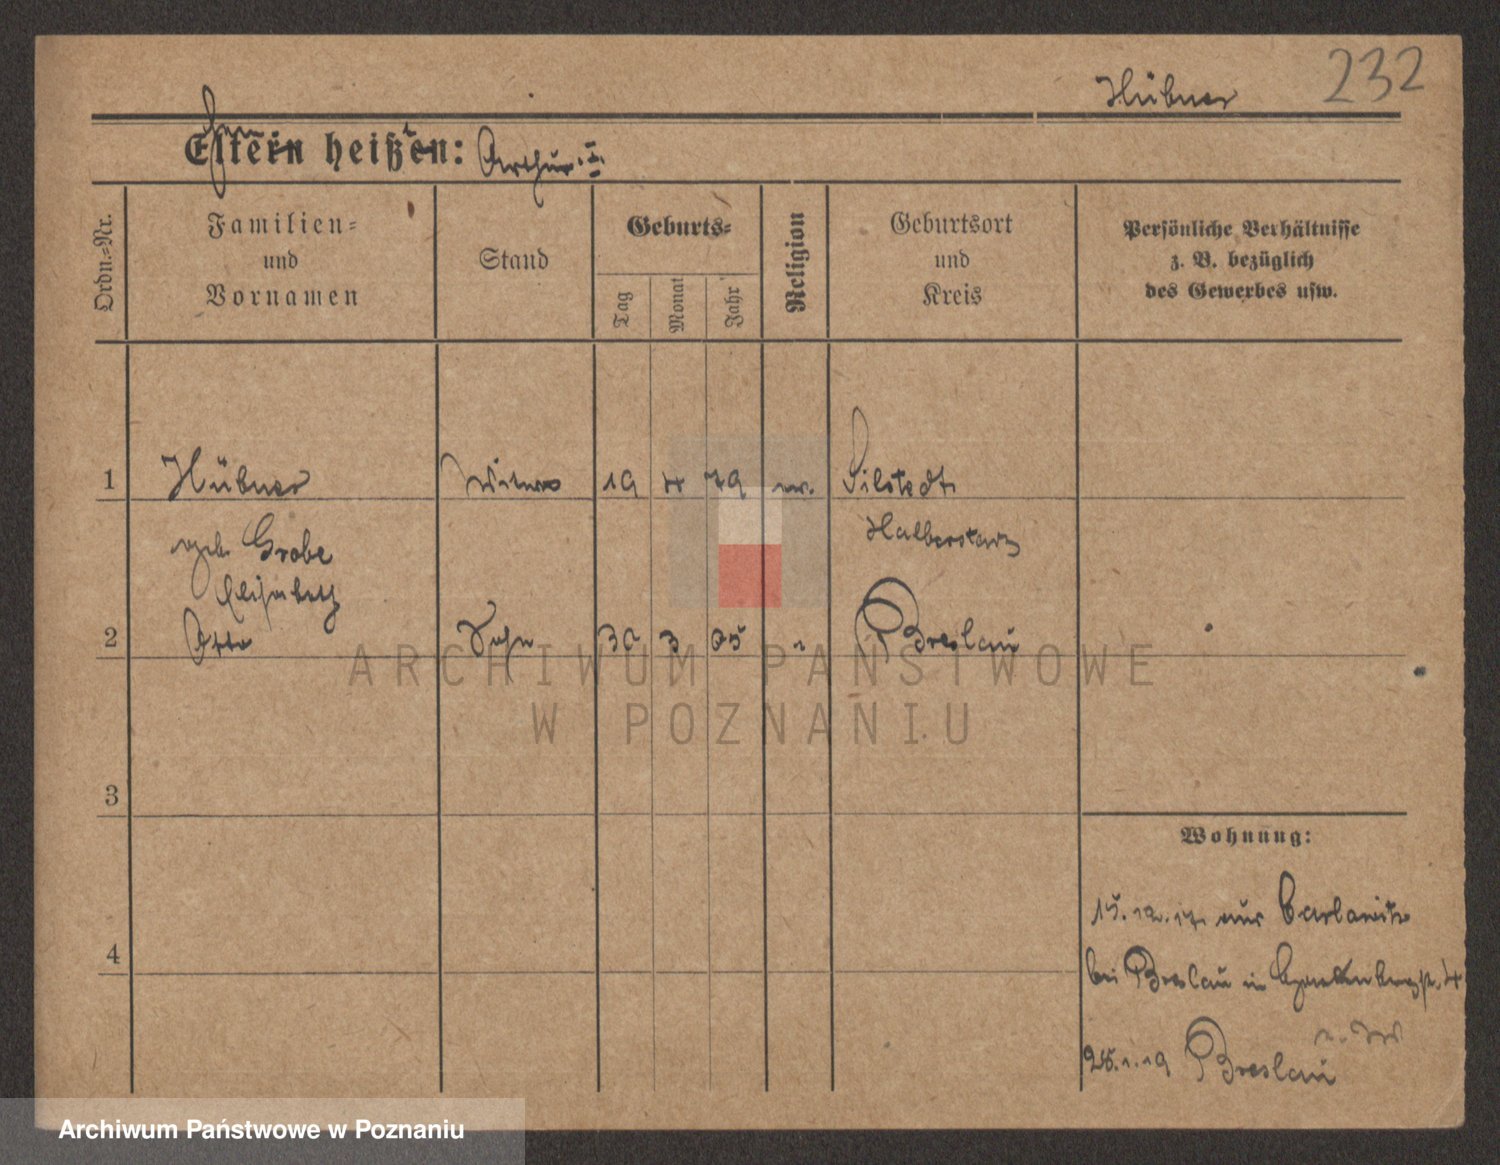 Hübner 232
Eltern heißen: Arthur
Ordn.=Nr.
Familien=
und
Vornamen
Stand
Geburts=
Tag
Monat
Jahr
Religion
Geburtsort
und
Kreis
Persönliche Verhältnisse
z. B. bezüglich
des Gewerbes usw.
1 Hübner Witwe 19 4 79 ev. Silstedt
geb. Grobe Halberstadt
Elisabeth
2 Otto Sohn 30 3 05 " Breslau
3
4
Wohnung:
15. 12. 17. aus Carlowitz
bei Breslau in 4
28. 1. 19 Breslau
ARCHIWUM PAŃSTWOWE
W POZNANIU
Archiwum Państwowe w Poznaniu